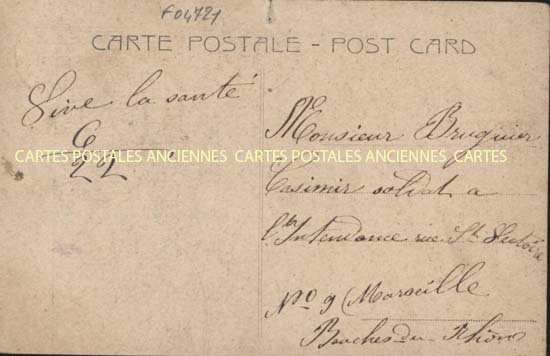 F04721
CARTE POSTALE - POST CARD
Vive la santé
CARTES POSTALES ANCIENNES CARTES POSTALES ANCIENNES CARTES POSTALES
Monsieur Bruguier
Casimir soldat a
l'Intendance rue St Victoire
No 9 Marseille
Bouches du Rhône